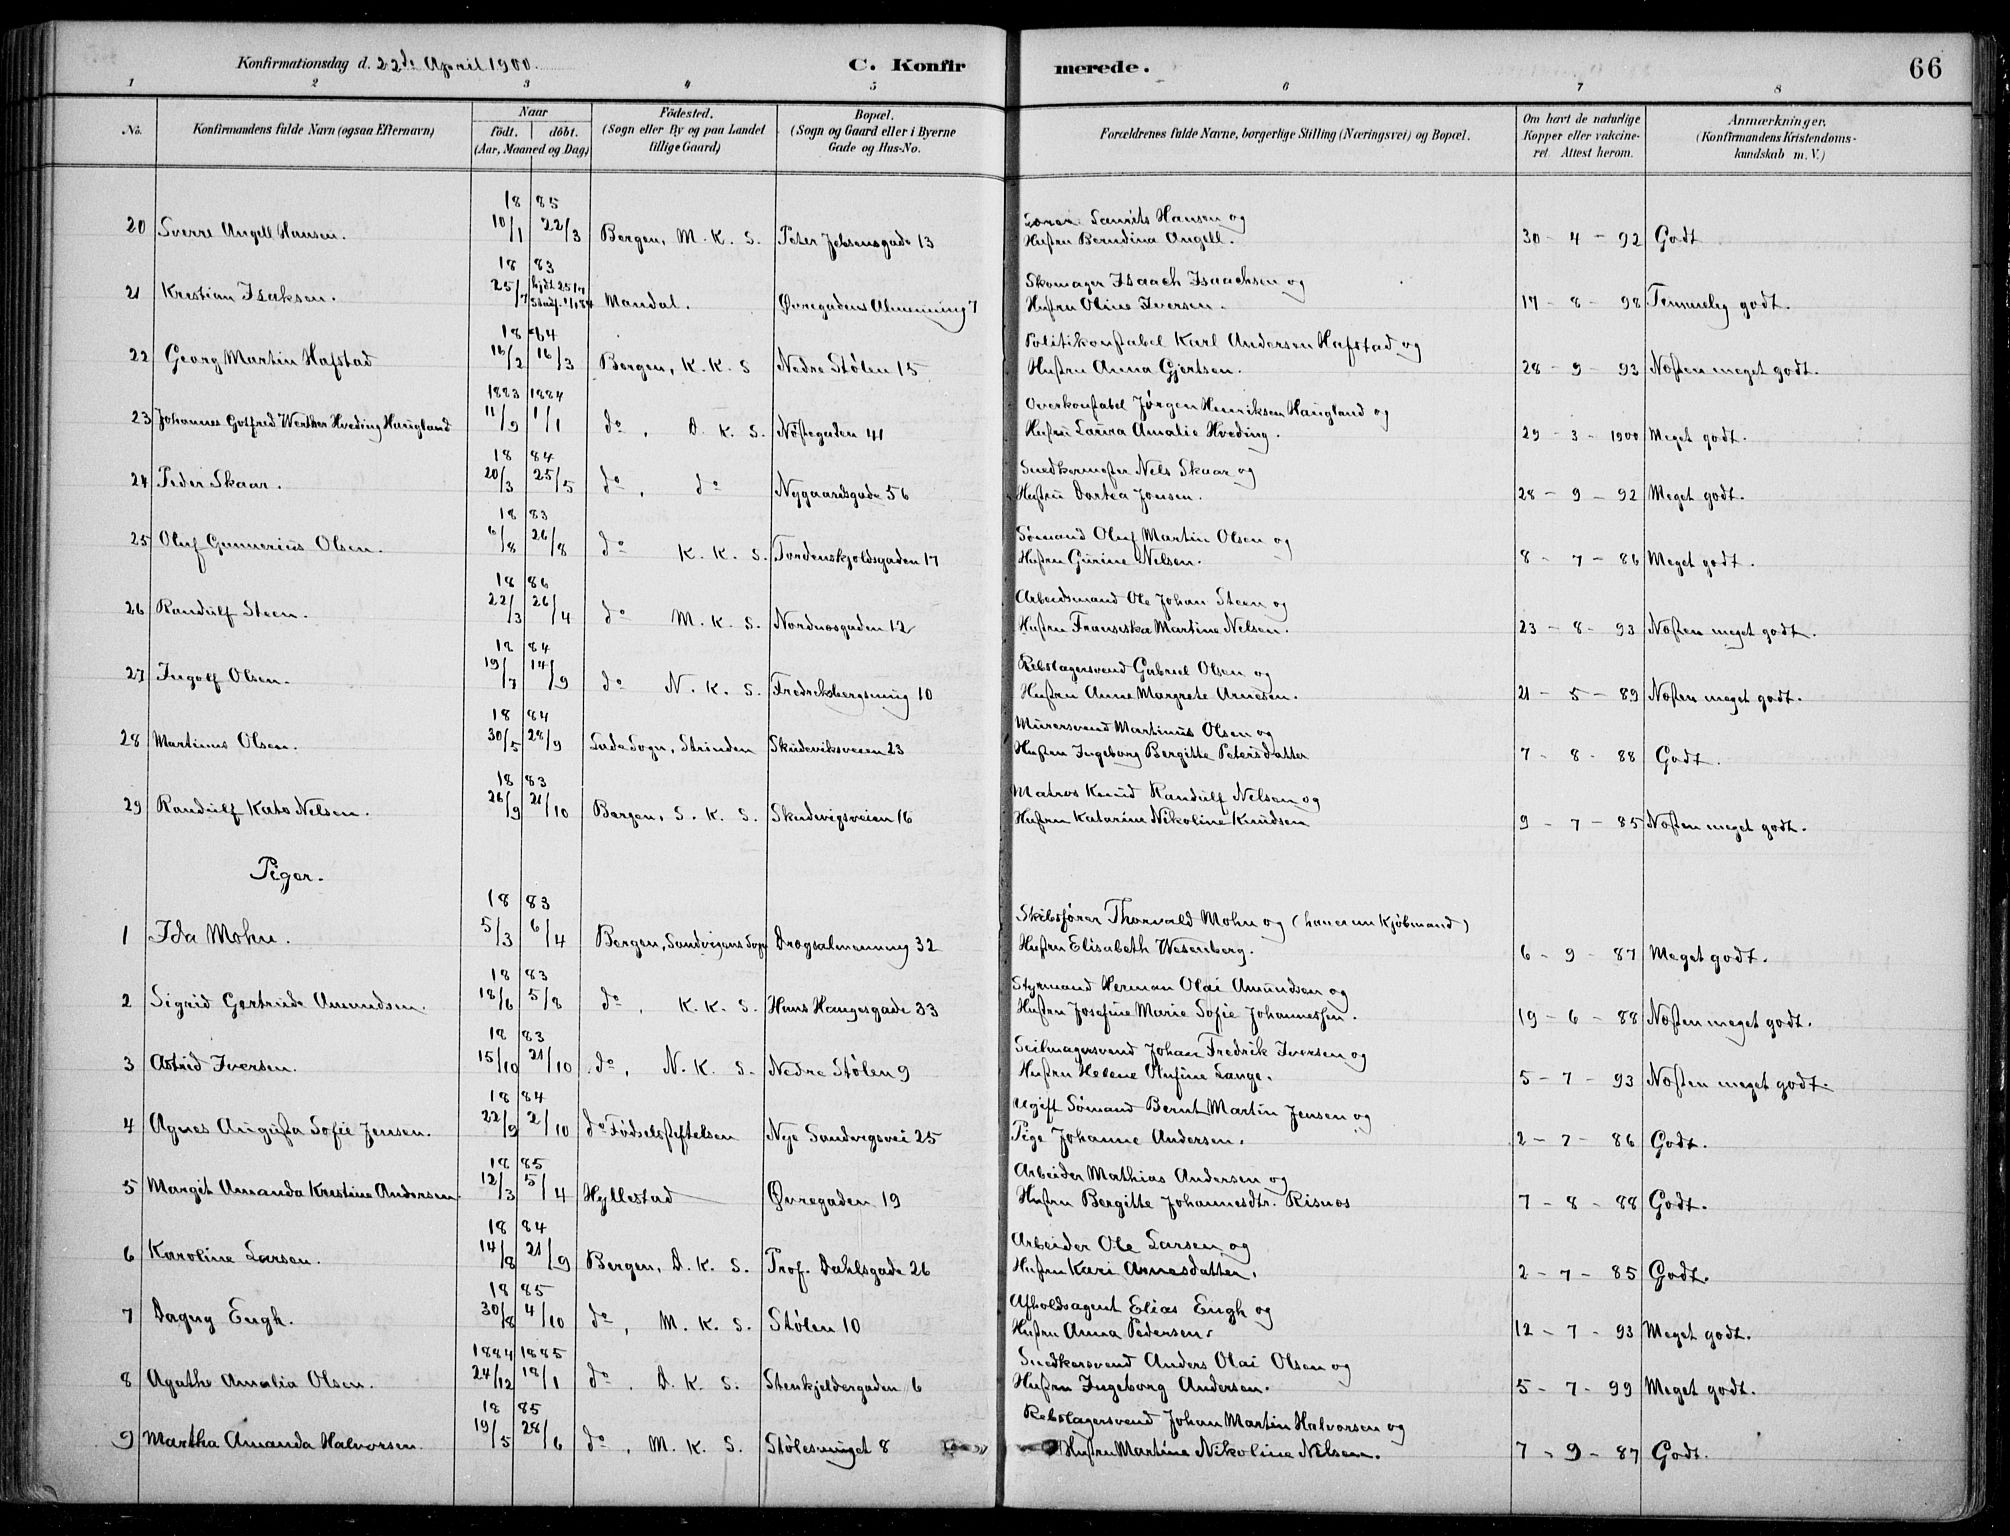 Konfirmationsdag d. 22de April 1900. C. Konfirmerede. 66
1 2 3 4 5 6 7 8
No. Konfirmandens fulde Navn (ogsaa Efternavn) Naar födt. döbt. (Aar, Maaned og Dag) Födested. (Sogn eller By og paa Landet tillige Gaard) Bopæl. (Sogn og Gaard eller i Byerne Gade og Hus-No. Forældrenes fulde Navne, borgerlige Stilling (Næringsvei) og Bopæl. Om havt de naturlige Kopper eller vakcineret. Attest herom. Anmærkninger. (Konfirmandens Kristendomskundskab m. V.)
18 85
20 Sverre Angell Hansen. 10/1 22/3 Bergen, M. K. S. Peter Jebsensgade 13 Lærer Laurits Hansen og Hustru Berndina Angell. 30 - 4 - 92 Godt
18 83
21 Kristian Isaksen. 25/7 Mandal. Øvregadens Almenning 7 Skomager Isaach Isaachsen og Hustru Oline Iversen. 17 - 8 - 98 Temmelig godt.
18 84
22 Georg Martin Hafstad 16/2 16/3 Bergen, K. K. S Nedre Stølen 15 Politikonstabel Karl Andersen Hafstad og Hustru Anna Gjertsen. 28 - 9 - 93 Næsten meget godt.
1883 1884
23 Johannes Gotfred Werther Hveding Haugland 11/9 1/1 do, D. K. S. Nøstegaden 41 Overkonstabel Jørgen Henriksen Haugland og Hustru Laura Amalie Hveding. 29 - 3 - 1900 Meget godt.
18 84
24 Peder Skaar. 20/3 25/5 do, do Nygaardsgade 56 Snedkermester Nels Skaar og Hustru Dortea Jonsen. 28 - 9 - 92 Meget godt.
18 83
25 Oluf Gunnerius Olsen. 6/8 26/8 do K. K. S. Tordenskjoldsgaden 17 Sømand Oluf Martin Olsen og Hustru Gurine Nelsen. 8 - 7 - 86 Meget godt.
18 86
26 Randulf Steen. 22/3 26/4 do M. K. S. Nordnæsgaden 12 Arbeidsmand Ole Johan Steen og Hustru Fransiska Martine Nelsen. 23 - 8 - 93 Næsten meget godt.
18 84
27 Ingolf Olsen. 19/7 14/9 do N. K. S. Fredriksbergsmug 10 Rebslagersvend Gabriel Olsen og Hustru Anne Margrete Arnesen. 21 - 5 - 89 Næsten meget godt.
18 84
28 Martinus Olsen. 30/5 28/9 Lade Sogn, Strinden Skudeviksveien 23 Murersvend Martinus Olsen og Hustru Ingeborg Bergitte Petersdatter 7 - 8 - 88 Godt.
18 83
29 Randulf Kato Nelsen. 26/9 21/10 Bergen, S. K. S. Skudevigsveien 16 Matros Knud Randulf Nelsen og Hustru Katarine Nikoline Knudsen 9 - 7 - 85 Næsten meget godt.
Piger.
18 83
1 Ida Mohn. 5/3 6/4 Bergen, Sandvigens Sogn Dregsalmenning 32 Skibsfører Thorvald Mohn og (han er nu Kjøbmand) Hustru Elisabeth Wesenberg. 6 - 9 - 87 Meget godt.
18 83
2 Sigrid Gertrude Amundsen. 18/6 5/8 do, K. K. S. Hans Haugesgade 33 Styrmand Herman Olai Amundsen og Hustru Josefine Marie Sofie Johannessen. 19 - 6 - 88 Næsten meget godt.
18 83
3 Astrid Iversen. 15/10 21/10 do, N. K. S. Nedre Stølen 9 Seilmagersvend Johan Fredrik Iversen og Hustru Helene Olufine Lange. 5 - 7 - 93 Næsten meget godt.
18 84
4 Agnes Augusta Sofie Jensen. 22/9 2/10 do Fødselsstiftelsen Nye Sandvigsvei 25 Ugift Sømand Bernt Martin Jensen og Pige Johanne Andersen. 2 - 7 - 86 Godt.
18 85
5 Margit Amanda Kristine Andersen. 12/3 5/4 Hyllestad Øvregaden 19 Arbeider Mathias Andersen og Hustru Bergitte Johannesdtr. Risnæs 7 - 8 - 88 Godt.
18 84
6 Karoline Larsen. 14/8 21/9 Bergen, D. K. S. Prof. Dahlsgade 26 Arbeider Ole Larsen og Hustru Kari Arnesdatter. 2 - 7 - 85 Godt.
18 85
7 Dagny Engh. 30/8 4/10 do, M. K. S. Stølen 10 Afholdsagent Elias Engh og Hustru Anna Pedersen. 12 - 7 - 93 Meget godt.
1884 1885
8 Agathe Amalia Olsen. 24/12 18/1 do, D. K. S. Stenkjeldergaden 6 Snedkersvend Anders Olai Olsen og Hustru Ingeborg Andersen. 5 - 7 - 99 Meget godt.
18 85
9 Martha Amanda Halvorsen. 19/5 28/6 do, M. K. S. Stølesmuget 8 Rebslagersvend Johan Martin Halvorsen og Hustru Martine Nikoline Nilsen. 7 - 9 - 87 Godt.